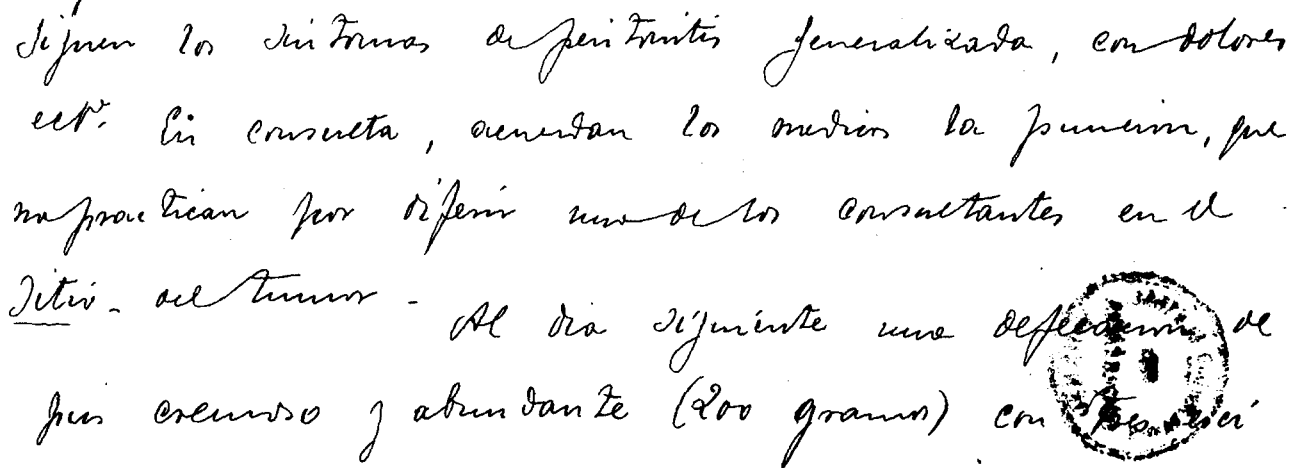 siguen los sintomas de peritonitis generalizada, con dolores
ect.ª En consulta, acuerdan los medicos la puncion, que
no practican por diferir uno de los consultantes en el
sitio - del tumor - Al dia siguiente una defecacion de
pus cremoso y abundante (200 gramos) con